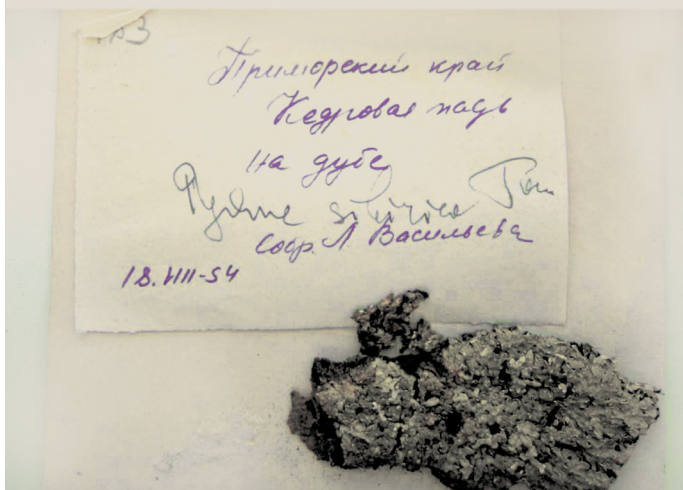 Приморский край
Кедровая падь
на дубе
Pyxine sibirica Tom
Собр. Л Васильева
18.VIII-54